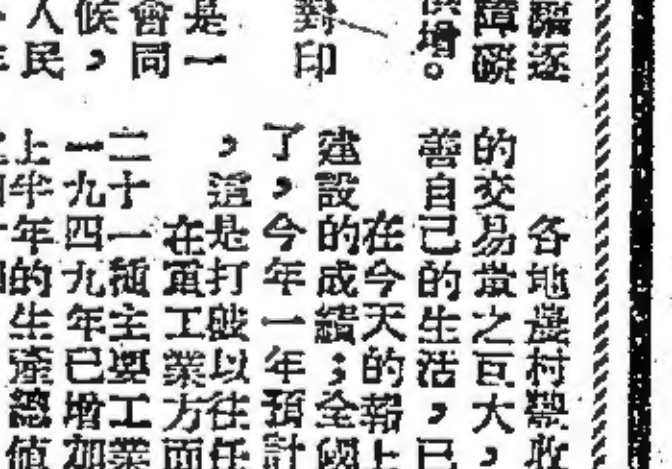 逐
障礙
增。
對印
是一
會同
候，
人民
各地農村豐收
的交易量之巨大，
善自己的生活，已
在今天的報上
建設的成績；全國
了，今年一年預計
，這是打破以往任
在重工業方面
二十一種主要工業
一九四九年已增加
上半年的生產總值